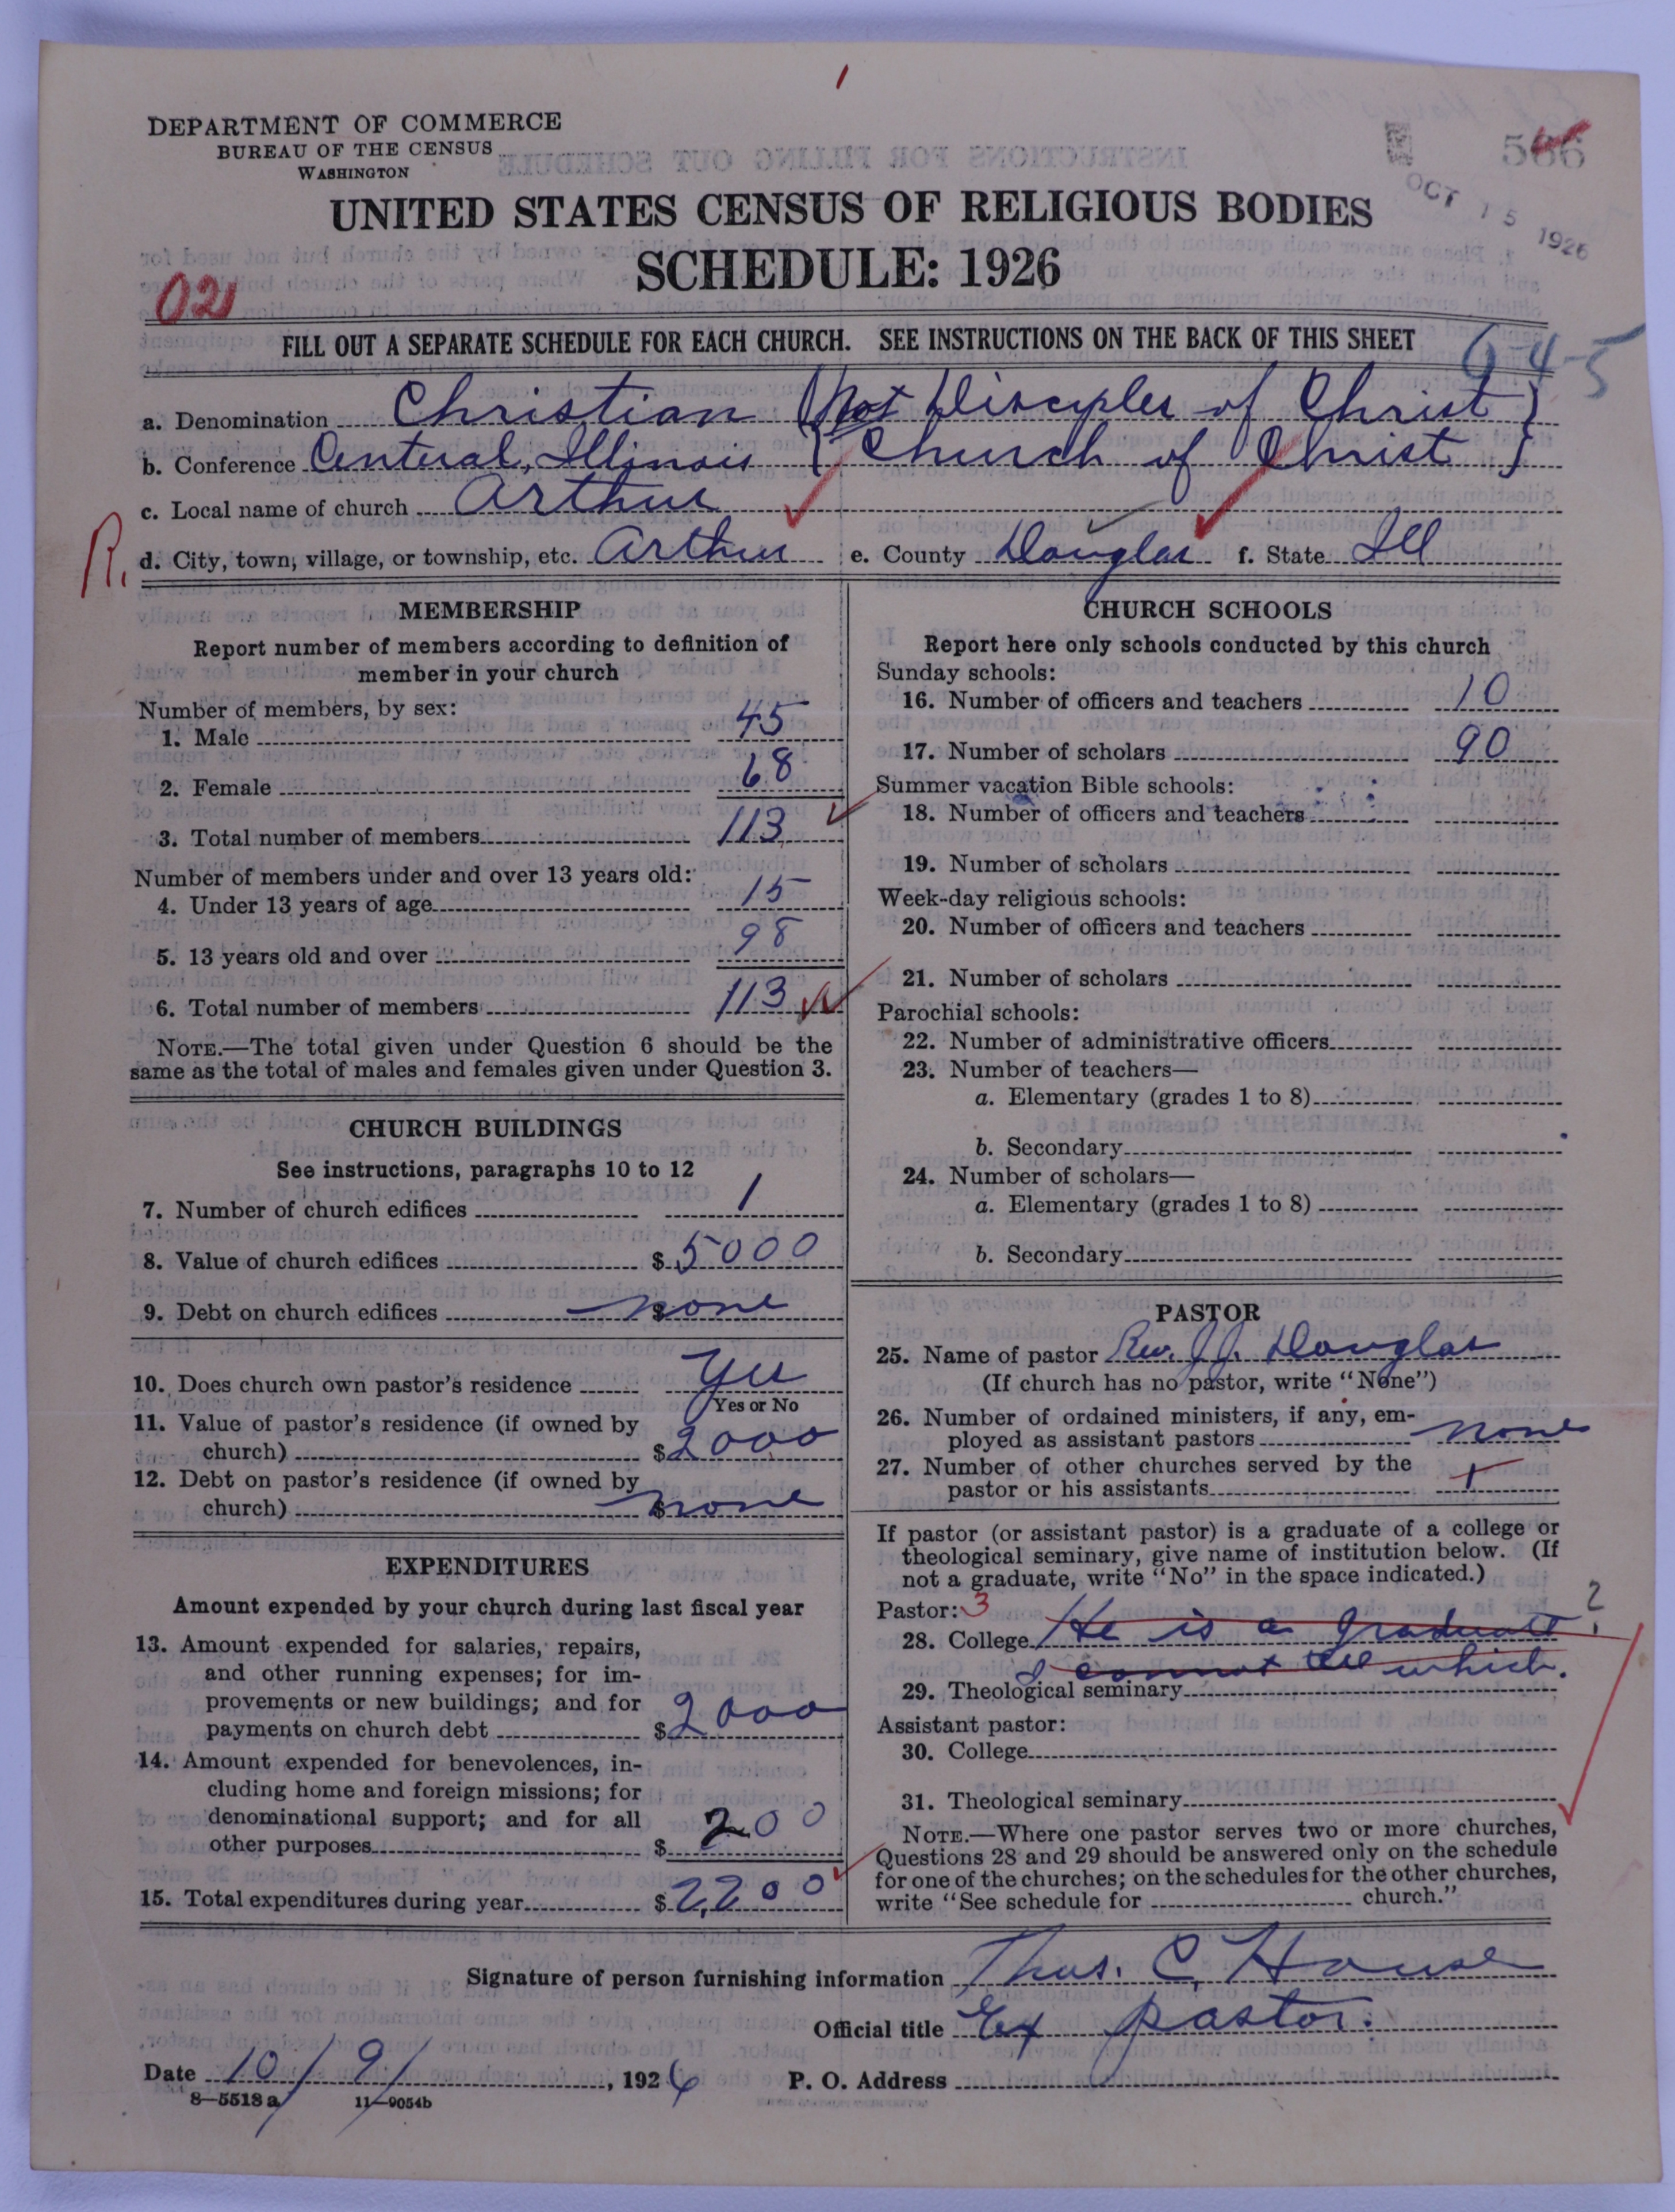 DEPARTMENT OF COMMERCE
BUREAU OF THE CENSUS
WASHINGTON
566
OCT 15 1926
UNITED STATES CENSUS OF RELIGIOUS BODIES
SCHEDULE: 1926
02
FILL OUT A SEPARATE SCHEDULE FOR EACH CHURCH. SEE INSTRUCTIONS ON THE BACK OF THIS SHEET
6-4-5
a. Denomination Christian (Not Disciples of Christ)
b. Conference Central, Illinois (Church of Christ)
c. Local name of church Arthur
R. d. City, town, village, or township, etc. Arthur e. County Douglas f. State Ill
MEMBERSHIP
Report number of members according to definition of
member in your church
Number of members, by sex:
1. Male 45
2. Female 68
3. Total number of members 113
Number of members under and over 13 years old:
4. Under 13 years of age 15
5. 13 years old and over 98
6. Total number of members 113
NOTE.—The total given under Question 6 should be the
same as the total of males and females given under Question 3.
CHURCH BUILDINGS
See instructions, paragraphs 10 to 12
7. Number of church edifices 1
8. Value of church edifices $5000
9. Debt on church edifices $ none
10. Does church own pastor's residence yes
Yes or No
11. Value of pastor's residence (if owned by
church) $2000
12. Debt on pastor's residence (if owned by
church) $ none
EXPENDITURES
Amount expended by your church during last fiscal year
13. Amount expended for salaries, repairs,
and other running expenses; for im-
provements or new buildings; and for
payments on church debt $2000
14. Amount expended for benevolences, in-
cluding home and foreign missions; for
denominational support; and for all
other purposes $ 200
15. Total expenditures during year $2200
CHURCH SCHOOLS
Report here only schools conducted by this church
Sunday schools:
16. Number of officers and teachers 10
17. Number of scholars 90
Summer vacation Bible schools:
18. Number of officers and teachers
19. Number of scholars
Week-day religious schools:
20. Number of officers and teachers
21. Number of scholars
Parochial schools:
22. Number of administrative officers
23. Number of teachers—
a. Elementary (grades 1 to 8)
b. Secondary
24. Number of scholars—
a. Elementary (grades 1 to 8)
b. Secondary
PASTOR
25. Name of pastor Rev. J. J. Douglas
(If church has no pastor, write "None")
26. Number of ordained ministers, if any, em-
ployed as assistant pastors none
27. Number of other churches served by the
pastor or his assistants
If pastor (or assistant pastor) is a graduate of a college or
theological seminary, give name of institution below. (If
not a graduate, write "No" in the space indicated.)
Pastor: 3
28. College He is a graduate ?
I cannot tell which.
29. Theological seminary
Assistant pastor:
30. College
31. Theological seminary
NOTE.—Where one pastor serves two or more churches,
Questions 28 and 29 should be answered only on the schedule
for one of the churches; on the schedules for the other churches,
write "See schedule for church."
Signature of person furnishing information Thos. C. House
Official title Ex pastor.
Date 10/9/, 1926 P. O. Address
8—5518 a 11—9054b